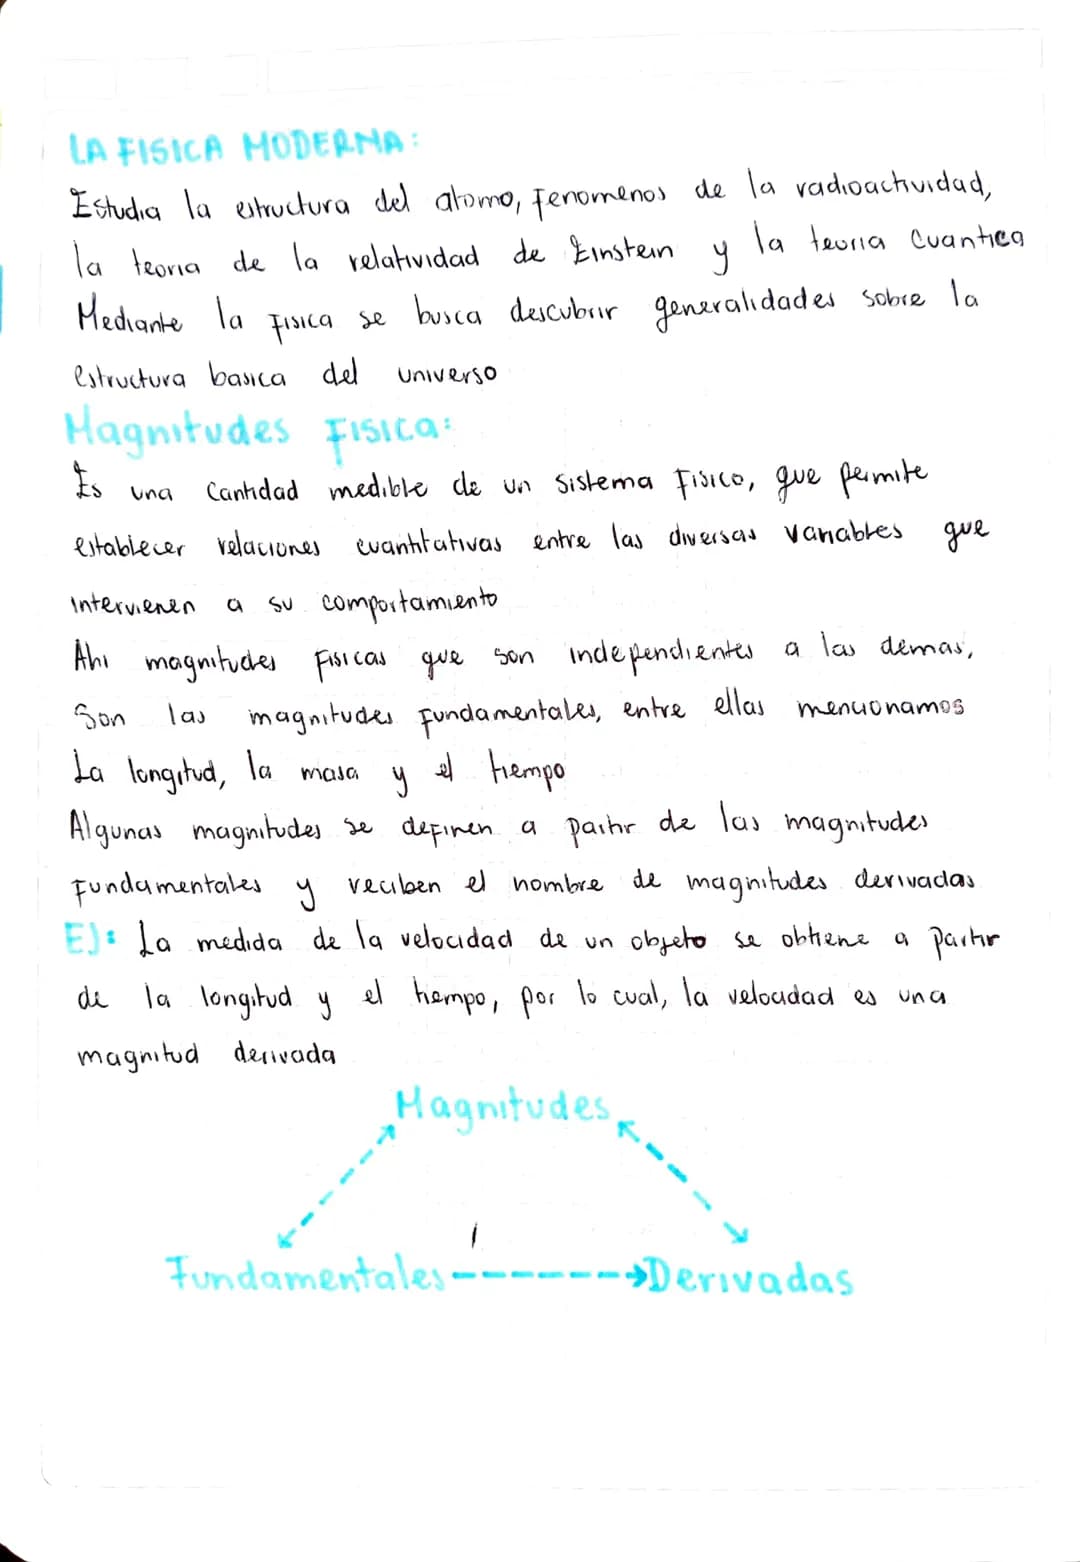 LA FISICA MODERNA:
Estudia la estructura del atomo, Fenomenos de la radioactividad,
la teoria de la relatividad de Einstein y la teoria Cuantica
Mediante la Fisica se busca descubrir generalidades sobre la
estructura basica del universo
Magnitudes FISICA:
Es una Cantidad medible de un Sistema Fisico, que permite
establecer relaciones cuantitativas entre las diversas variables que
intervienen a su comportamiento
Ahi magnitudes Fisicas que son independientes a las demas,
Son las magnitudes Fundamentales, entre ellas mencionamos
La longitud, la masa y el tiempo
Algunas magnitudes se definen a partir de las magnitudes
Fundamentales y reciben el nombre de magnitudes derivadas
EJ: La medida de la velocidad de un objeto se obtiene a partir
de la longitud y el tiempo, por lo cual, la velocidad es una
magnitud derivada
Magnitudes
Fundamentales Derivadas